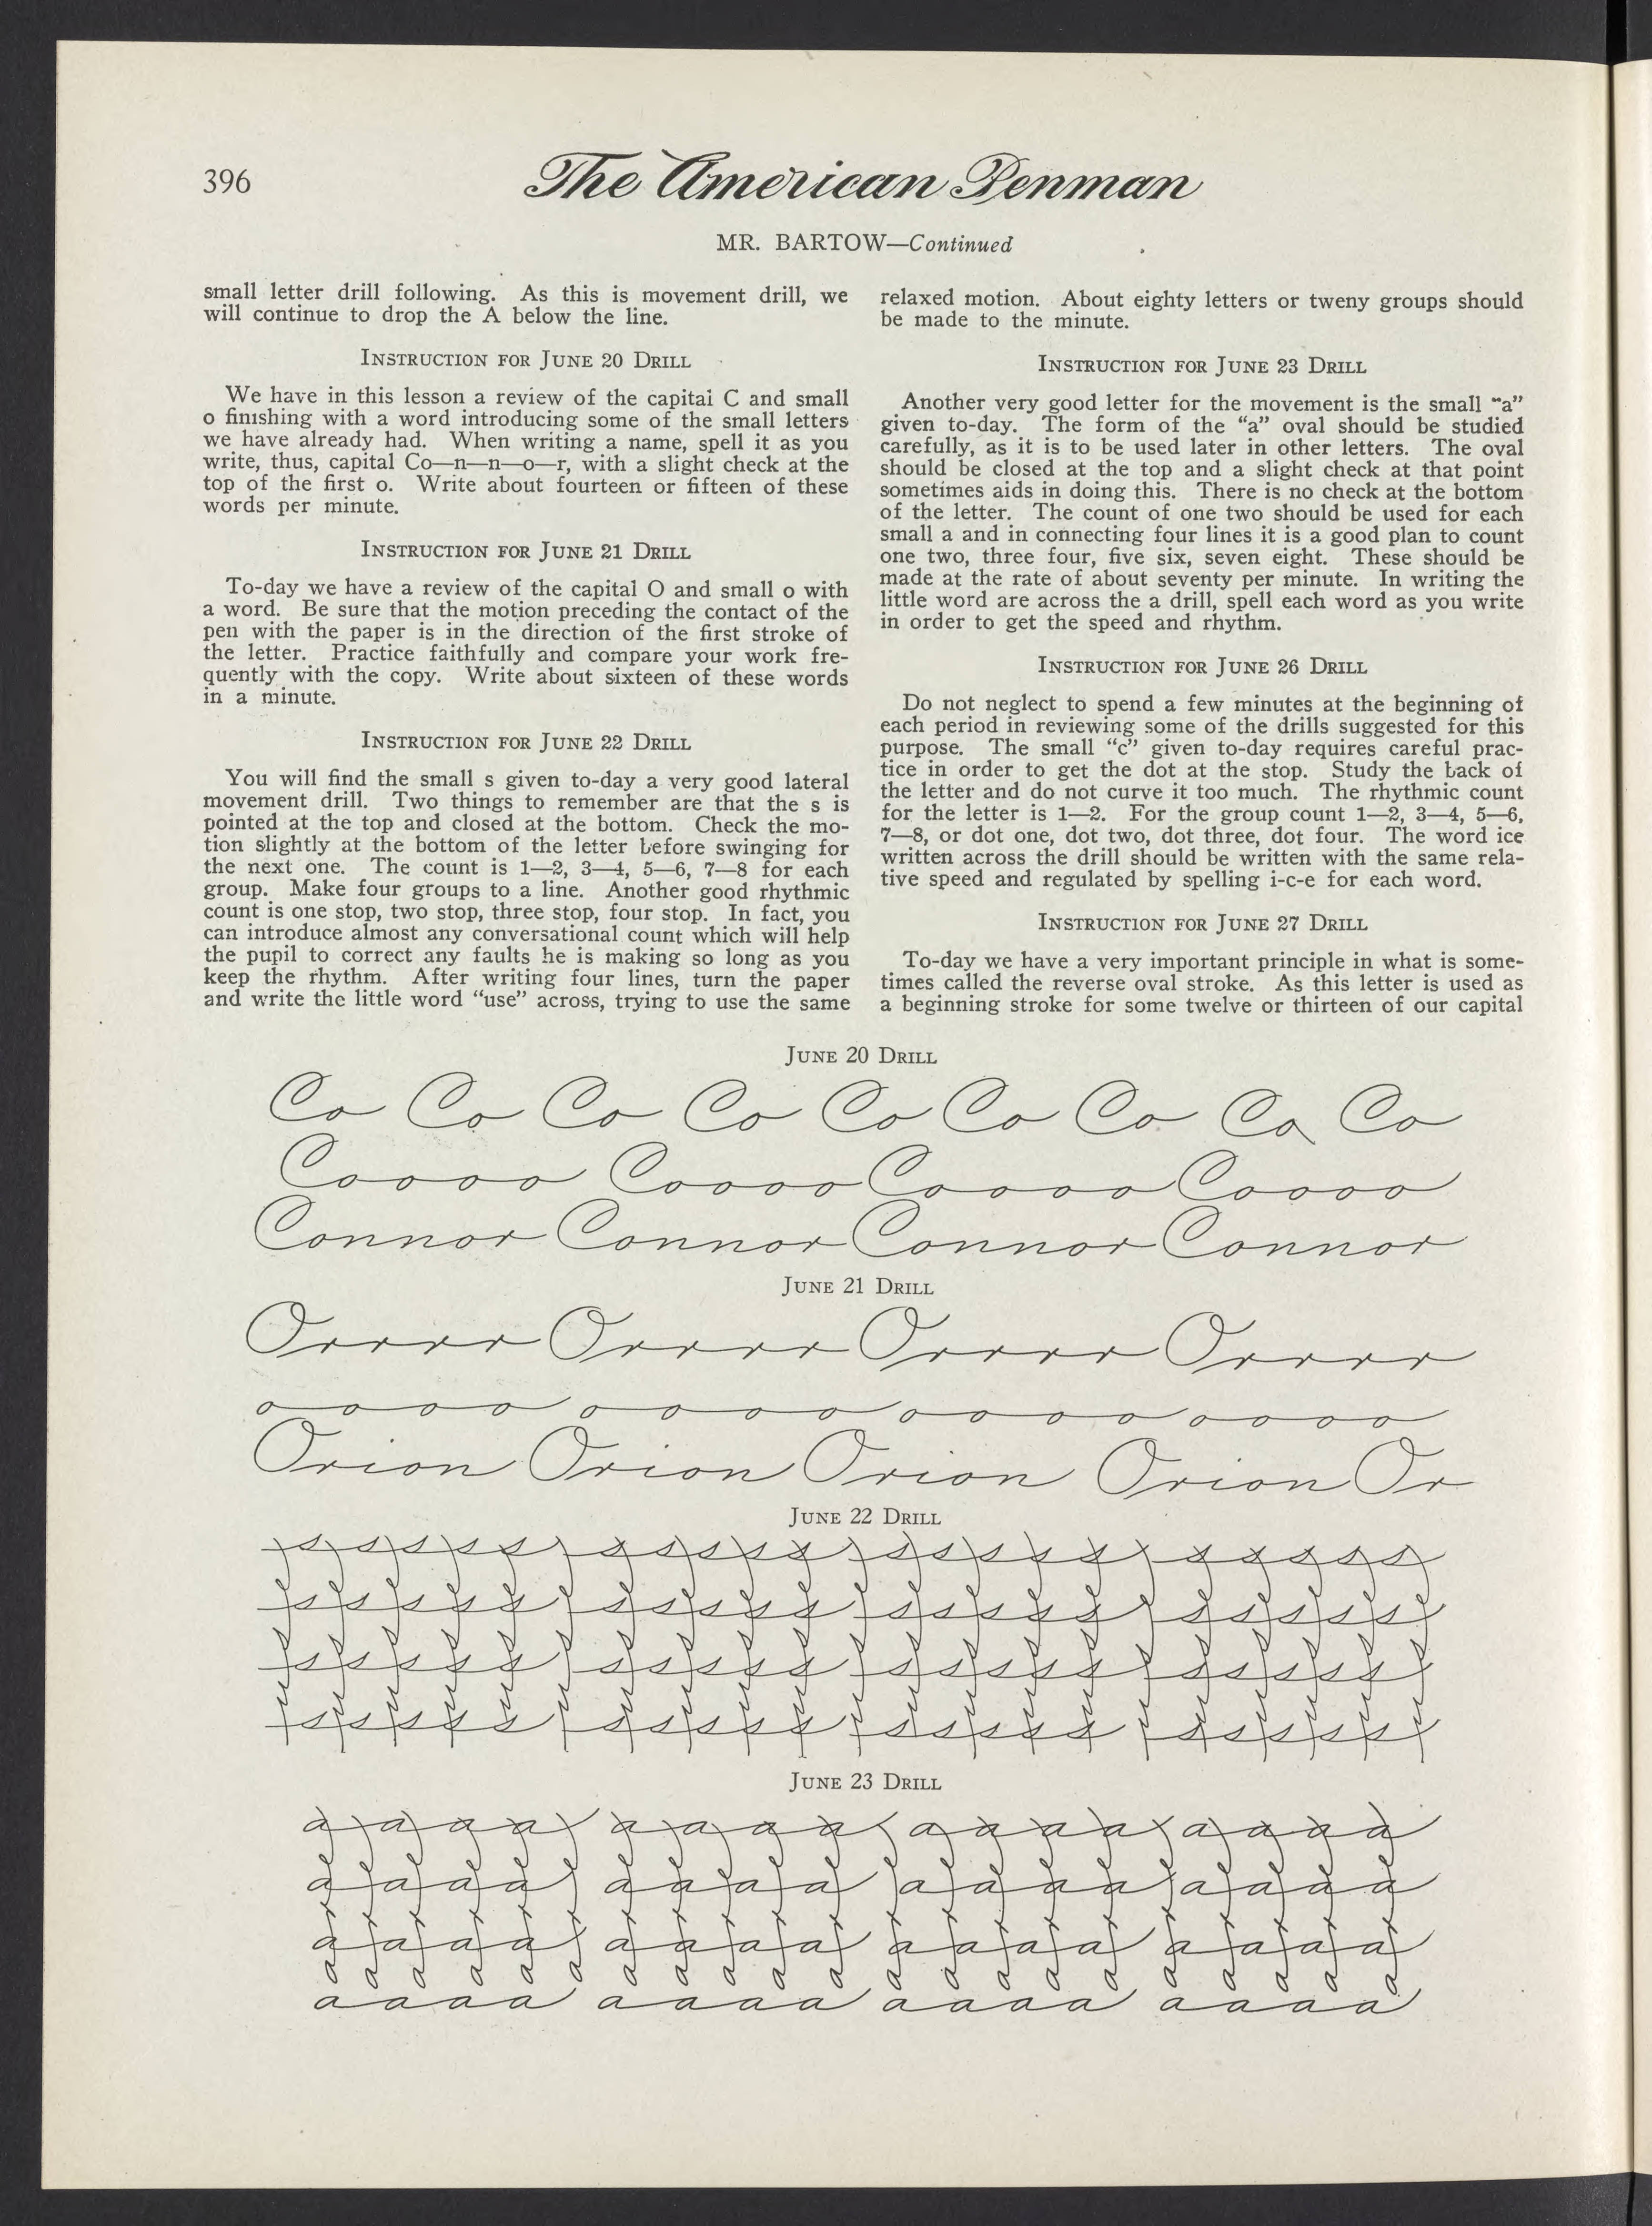 396
The American Penman
MR. BARTOW—Continued
small letter drill following. As this is movement drill, we
will continue to drop the A below the line.
INSTRUCTION FOR JUNE 20 DRILL
We have in this lesson a review of the capital C and small
o finishing with a word introducing some of the small letters
we have already had. When writing a name, spell it as you
write, thus, capital Co—n—n—o—r, with a slight check at the
top of the first o. Write about fourteen or fifteen of these
words per minute.
INSTRUCTION FOR JUNE 21 DRILL
To-day we have a review of the capital O and small o with
a word. Be sure that the motion preceding the contact of the
pen with the paper is in the direction of the first stroke of
the letter. Practice faithfully and compare your work fre-
quently with the copy. Write about sixteen of these words
in a minute.
INSTRUCTION FOR JUNE 22 DRILL
You will find the small s given to-day a very good lateral
movement drill. Two things to remember are that the s is
pointed at the top and closed at the bottom. Check the mo-
tion slightly at the bottom of the letter before swinging for
the next one. The count is 1—2, 3—4, 5—6, 7—8 for each
group. Make four groups to a line. Another good rhythmic
count is one stop, two stop, three stop, four stop. In fact, you
can introduce almost any conversational count which will help
the pupil to correct any faults he is making so long as you
keep the rhythm. After writing four lines, turn the paper
and write the little word "use" across, trying to use the same
relaxed motion. About eighty letters or tweny groups should
be made to the minute.
INSTRUCTION FOR JUNE 23 DRILL
Another very good letter for the movement is the small "a"
given to-day. The form of the "a" oval should be studied
carefully, as it is to be used later in other letters. The oval
should be closed at the top and a slight check at that point
sometimes aids in doing this. There is no check at the bottom
of the letter. The count of one two should be used for each
small a and in connecting four lines it is a good plan to count
one two, three four, five six, seven eight. These should be
made at the rate of about seventy per minute. In writing the
little word are across the a drill, spell each word as you write
in order to get the speed and rhythm.
INSTRUCTION FOR JUNE 26 DRILL
Do not neglect to spend a few minutes at the beginning of
each period in reviewing some of the drills suggested for this
purpose. The small "c" given to-day requires careful prac-
tice in order to get the dot at the stop. Study the back of
the letter and do not curve it too much. The rhythmic count
for the letter is 1—2. For the group count 1—2, 3—4, 5—6,
7—8, or dot one, dot two, dot three, dot four. The word ice
written across the drill should be written with the same rela-
tive speed and regulated by spelling i-c-e for each word.
INSTRUCTION FOR JUNE 27 DRILL
To-day we have a very important principle in what is some-
times called the reverse oval stroke. As this letter is used as
a beginning stroke for some twelve or thirteen of our capital
JUNE 20 DRILL
Co Co Co Co Co Co Co Co Co
Coooo Coooo Coooo Coooo
Connor Connor Connor Connor
JUNE 21 DRILL
Orrrrr Orrrrr Orrrrr Orrrrr
oooo oooo oooo oooo
Orion Orion Orion Orion Or
JUNE 22 DRILL
sssss sssss sssss sssss
sssss sssss sssss sssss
sssss sssss sssss sssss
sssss sssss sssss sssss
JUNE 23 DRILL
aaaa aaaa aaaa aaaa
aaaa aaaa aaaa aaaa
aaaa aaaa aaaa aaaa
aaaa aaaa aaaa aaaa